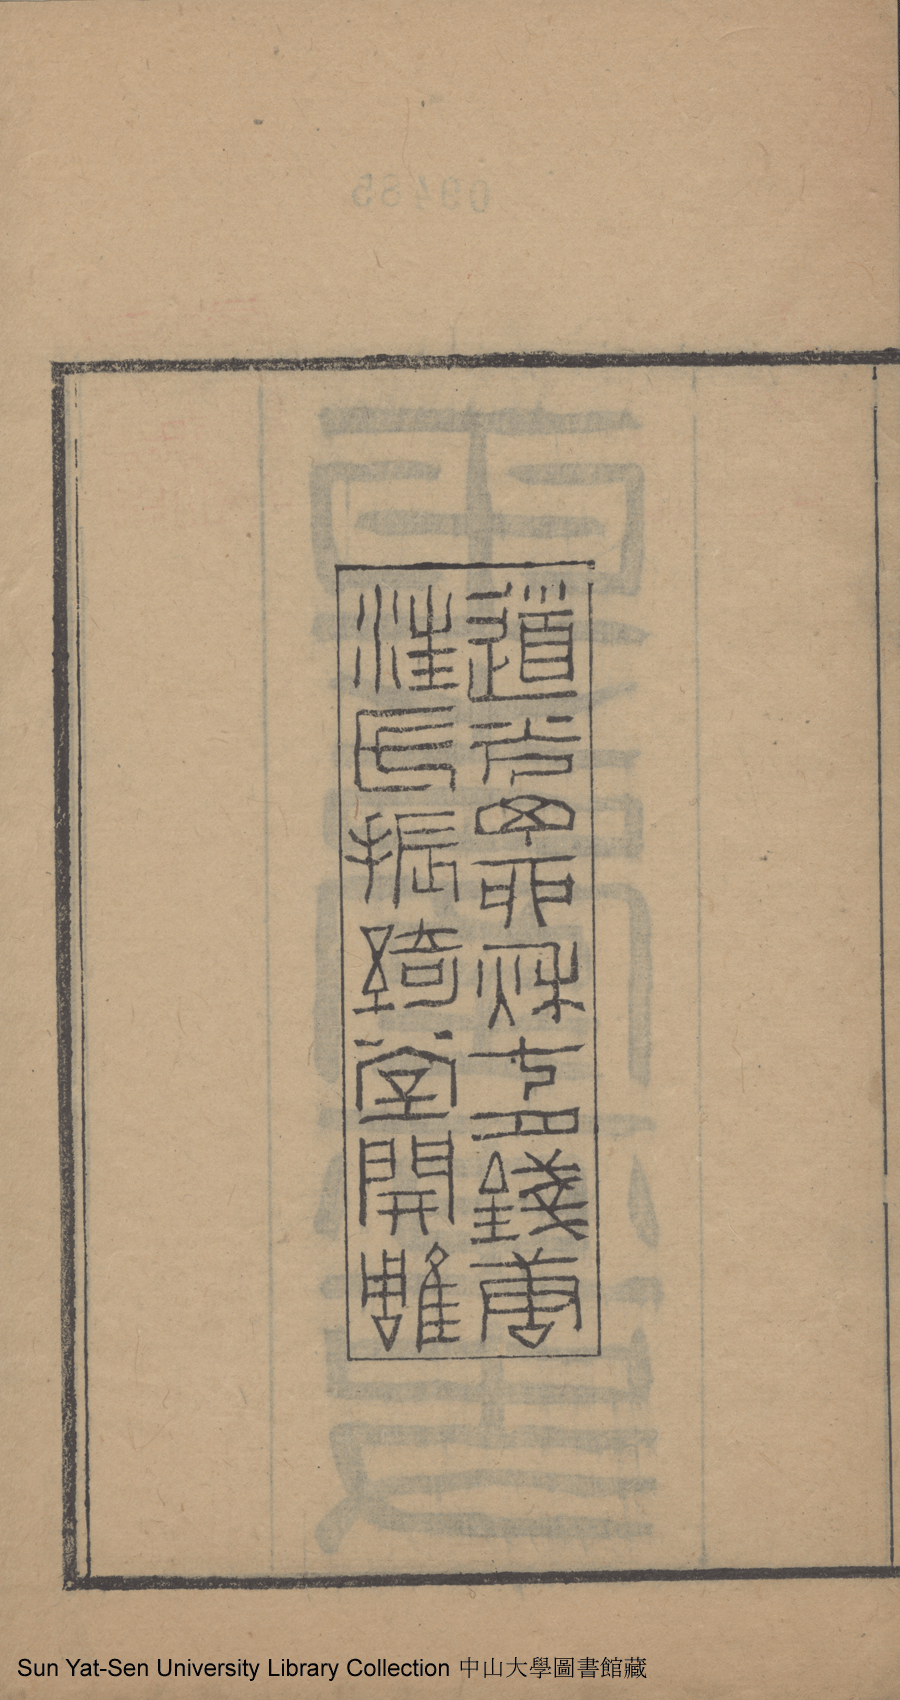 道光丁酉秋七月錢唐
汪氏振綺堂開雕
Sun Yat-Sen University Library Collection 中山大學圖書館藏